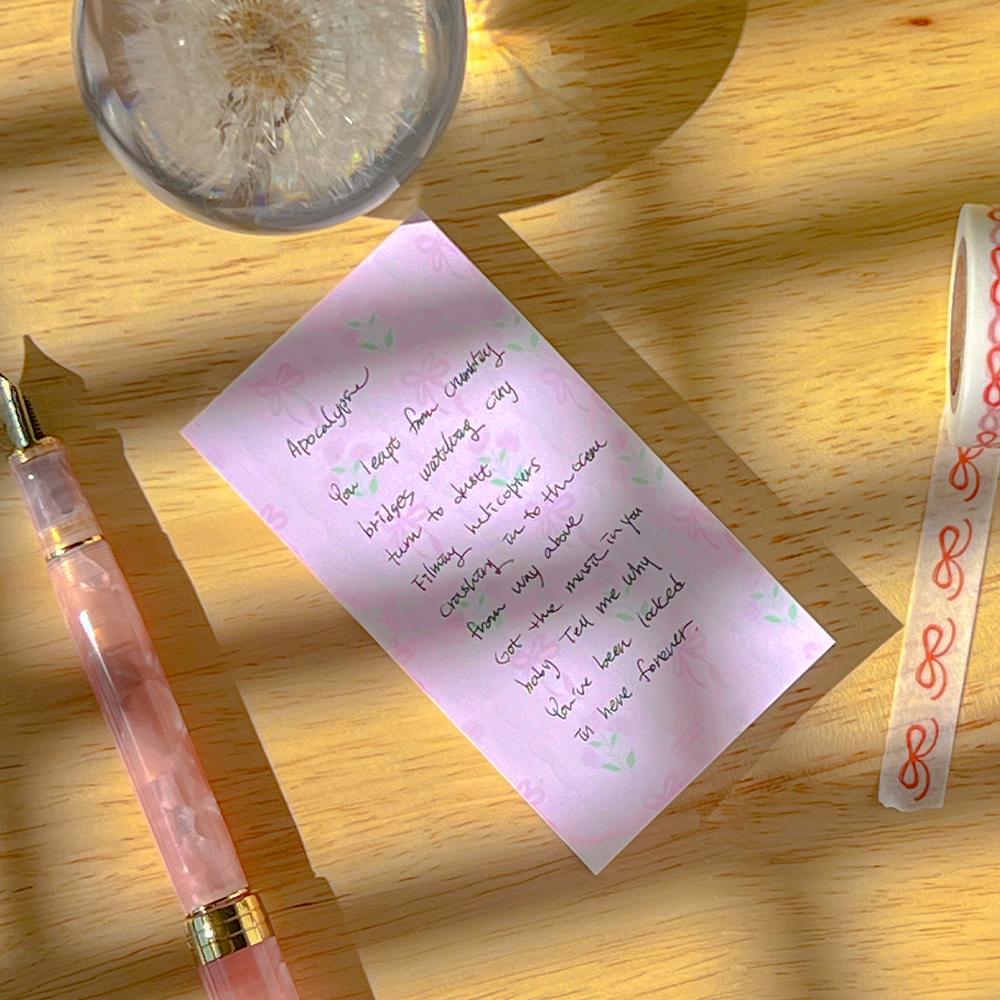 Apocalypse
You leapt from crumbling
bridges watching city
turn to dust
Filming helicopters
crashing in to the ocean
from way above
Got the music in you
baby Tell me why
You've been locked
in here forever.